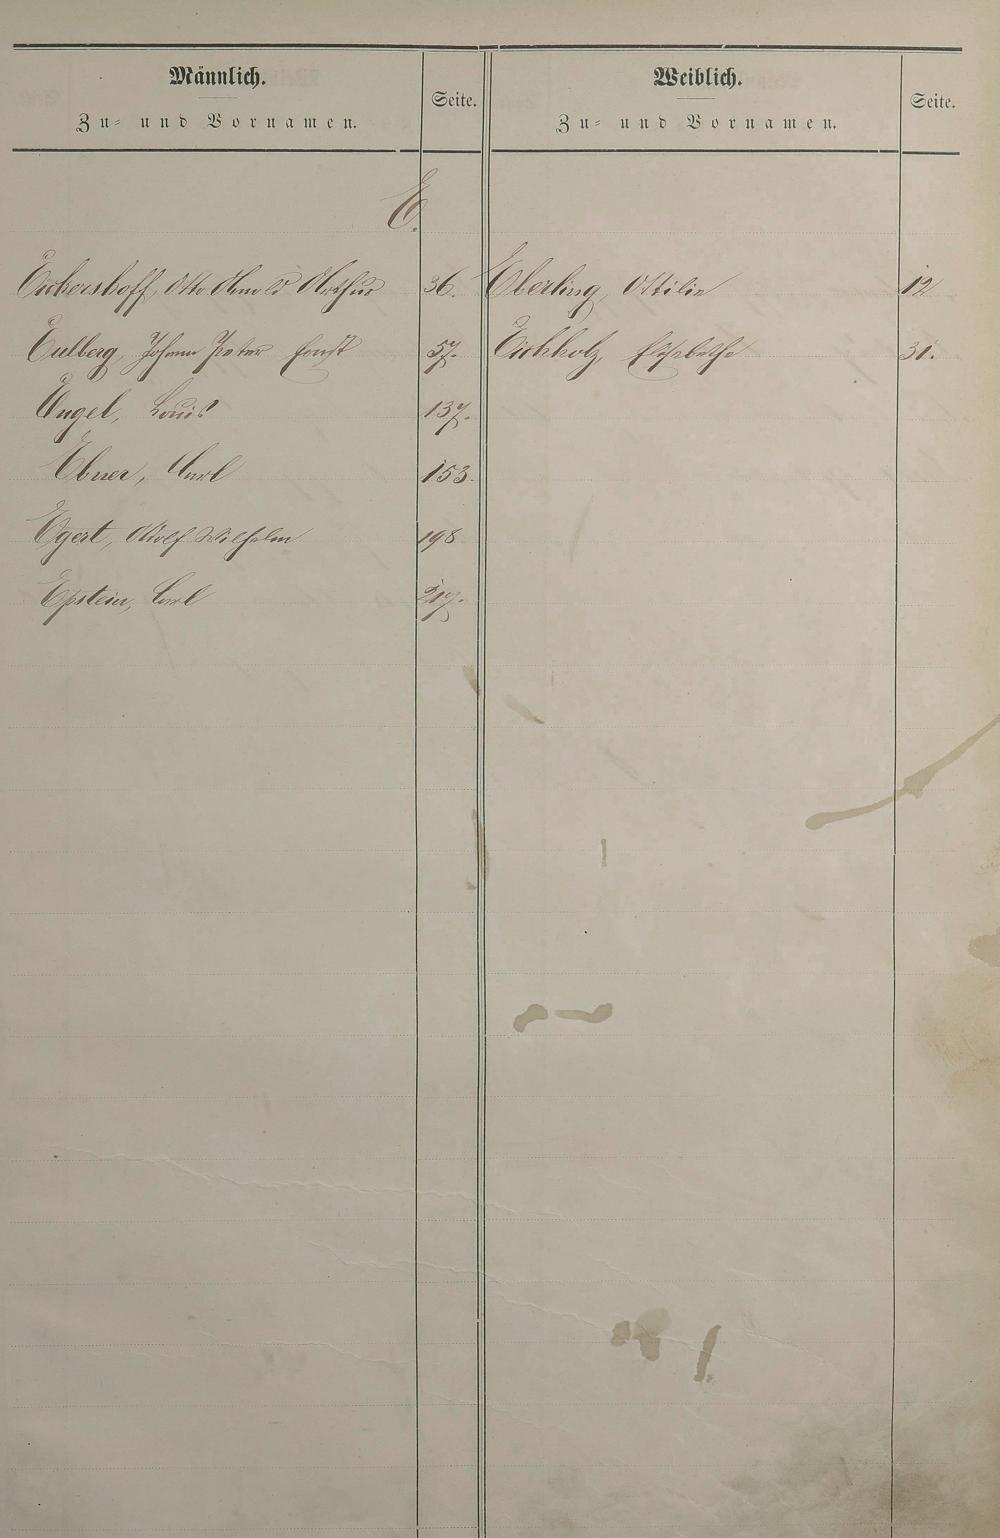 Männlich.
Zu= und Vornamen.
Seite.
Weiblich.
Zu= und Vornamen.
Seite.
E.
Otto Arnold Arthur 36.
Eulberg, Johann Peter Ernst 57.
Engel, Louis 137.
Ebner, Carl 153.
Egert, Adolf Wilhelm 198
Epstein, Carl 217.
Eberling, Ottilie 12
Eichholz, Elisabetha 31.